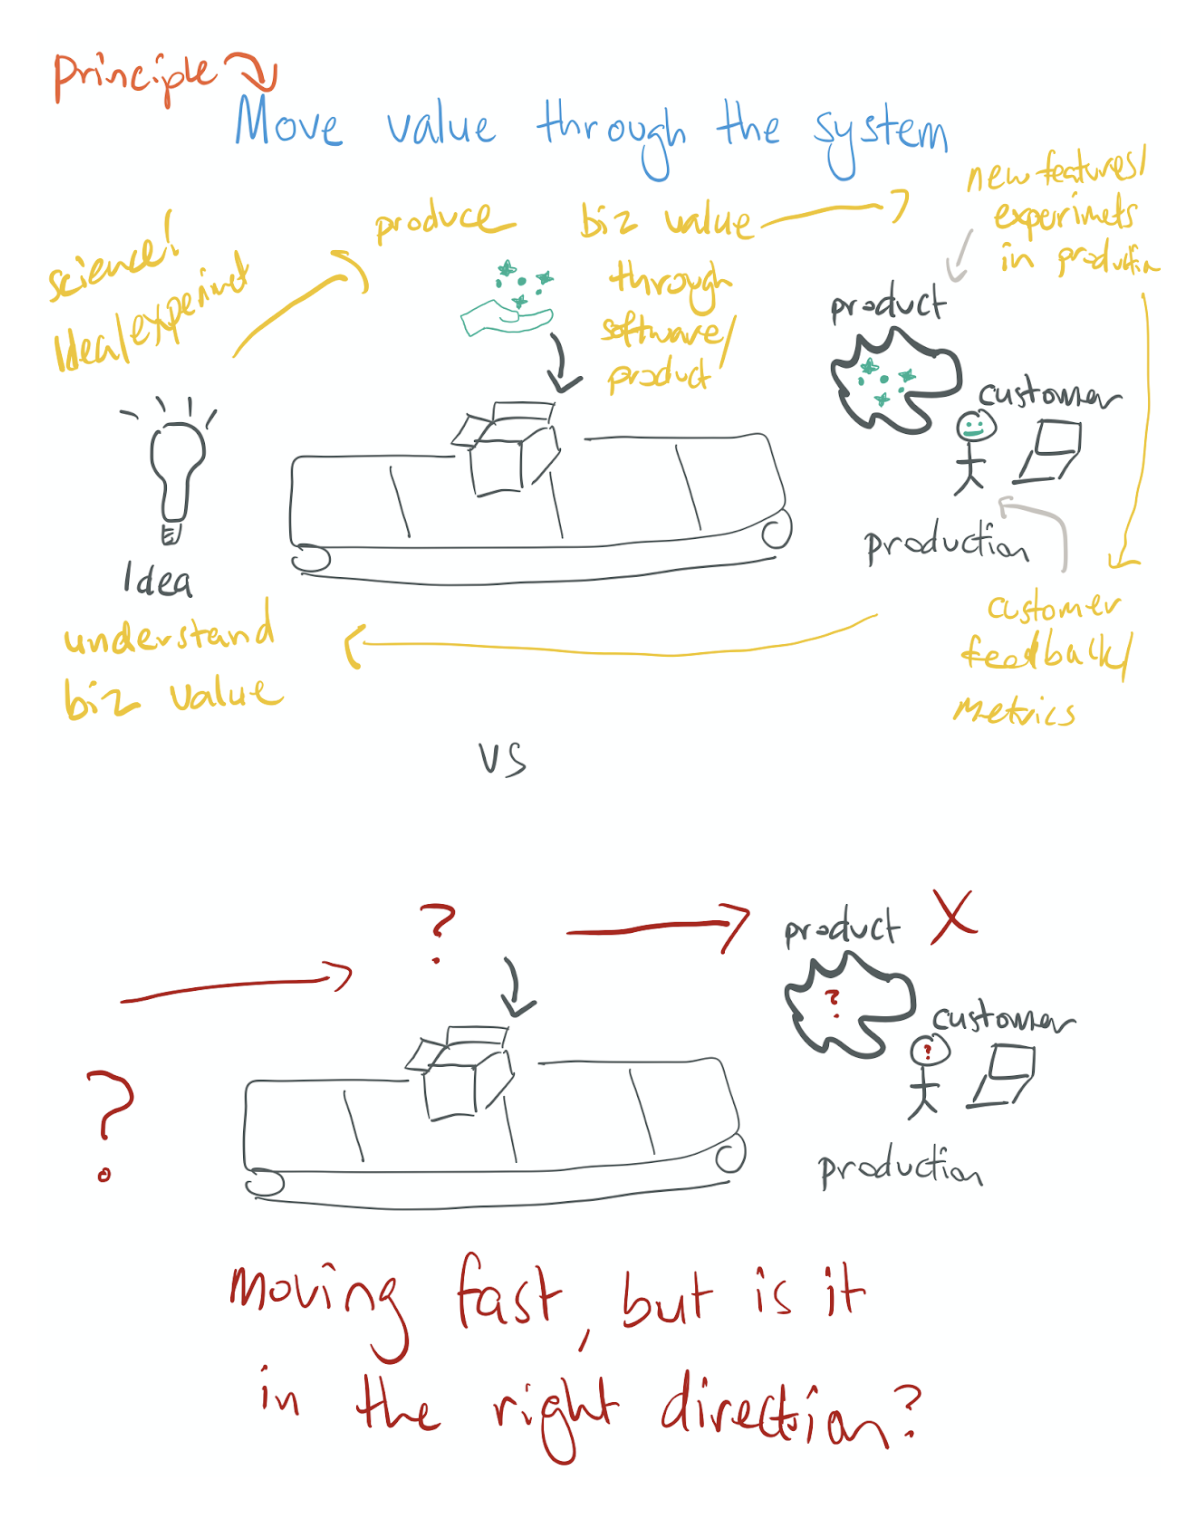 Principle
Move value through the system
science!
Idea/experimet
produce
biz value
through
software/
product
new features/
experimets
in production
product
customer
production
Idea
understand
biz value
customer
feedback/
metrics
vs
?
?
product X
?
customer
?
production
Moving fast, but is it
in the right direction?